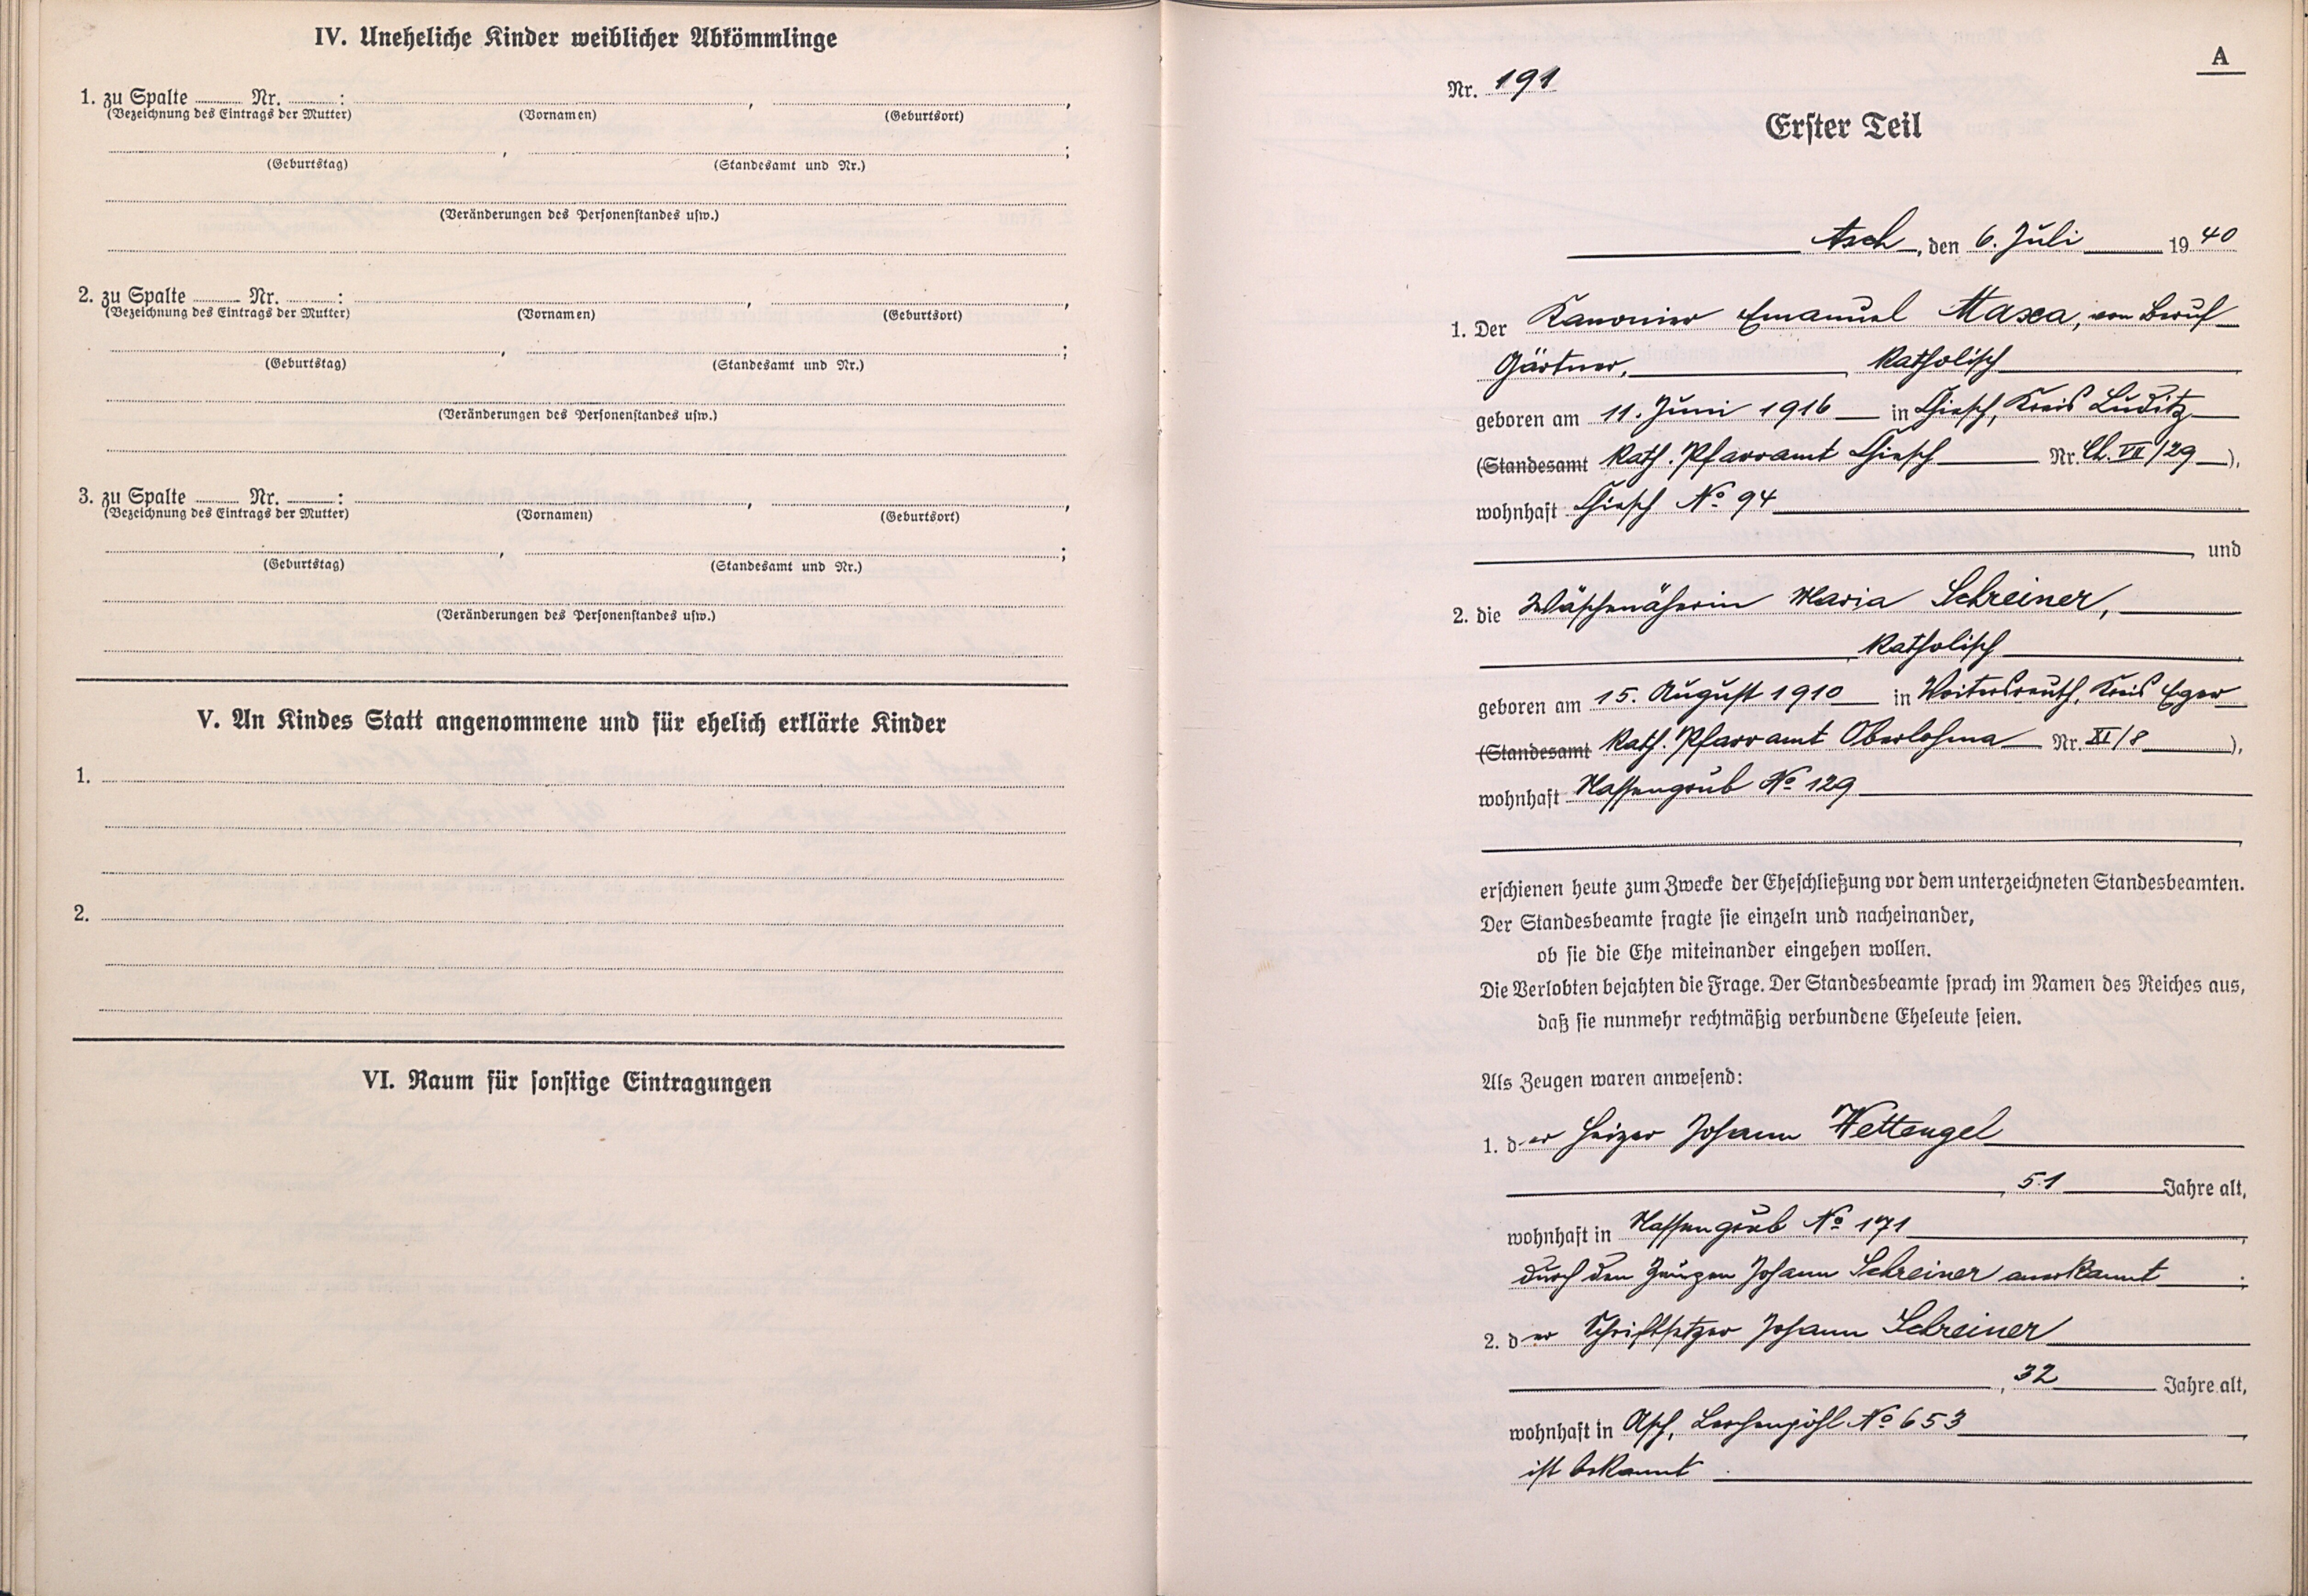 IV. Uneheliche Kinder weiblicher Abkömmlinge
1. zu Spalte Nr. : , ,
(Bezeichnung des Eintrags der Mutter) (Vornamen) (Geburtsort)
, ;
(Geburtstag) (Standesamt und Nr.)
(Veränderungen des Personenstandes usw.)
2. zu Spalte Nr. : , ,
(Bezeichnung des Eintrags der Mutter) (Vornamen) (Geburtsort)
, ;
(Geburtstag) (Standesamt und Nr.)
(Veränderungen des Personenstandes usw.)
3. zu Spalte Nr. : , ,
(Bezeichnung des Eintrags der Mutter) (Vornamen) (Geburtsort)
, ;
(Geburtstag) (Standesamt und Nr.)
(Veränderungen des Personenstandes usw.)
V. An Kindes Statt angenommene und für ehelich erklärte Kinder
1.
2.
VI. Raum für sonstige Eintragungen
A
Nr. 191
Erster Teil
Asch, den 6. Juli 1940
1. Der Kanonier Emanuel Maxa, von Beruf
Gärtner, katholisch
geboren am 11. Juni 1916 in Chiesch, Kreis Luditz
(Standesamt Kath. Pfarramt Chiesch Nr. Ch. VII/29),
wohnhaft Chiesch No 94
, und
2. die Wäschenäherin Maria Schreiner,
katholisch
geboren am 15. August 1910 in Voitersreuth, Kreis Eger
(Standesamt Kath. Pfarramt Oberlohma Nr. XI/8),
wohnhaft Nassengrub No 129
erschienen heute zum Zwecke der Eheschließung vor dem unterzeichneten Standesbeamten.
Der Standesbeamte fragte sie einzeln und nacheinander,
ob sie die Ehe miteinander eingehen wollen.
Die Verlobten bejahten die Frage. Der Standesbeamte sprach im Namen des Reiches aus,
daß sie nunmehr rechtmäßig verbundene Eheleute seien.
Als Zeugen waren anwesend:
1. der Heizer Johann Wettengel
, 51 Jahre alt,
wohnhaft in Nassengrub No 171,
durch den Zeugen Johann Schreiner anerkannt ;
2. der Schriftsetzer Johann Schreiner
, 32 Jahre alt,
wohnhaft in Asch, Lerchenpöhl No 653,
ist bekannt.